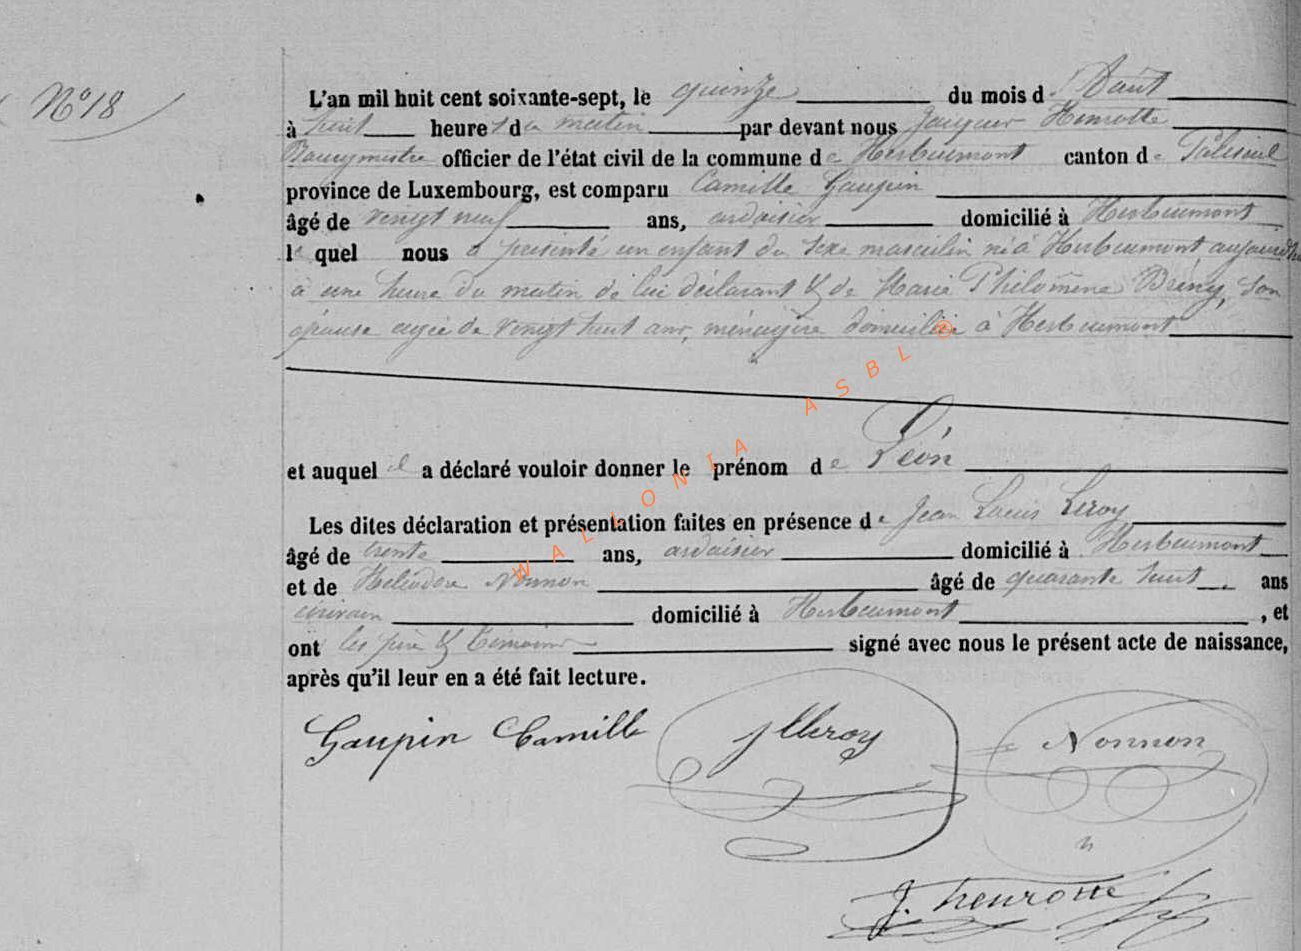 N° 18
L'an mil huit cent soixante-sept, le quinze du mois d'Août
à huit heures du matin par devant nous Jacques Henrotte
Bourgmestre officier de l'état civil de la commune de Herbeumont canton de Paliseul
province de Luxembourg, est comparu Camille Gaupin
âgé de vingt neuf ans, ardoisier domicilié à Herbeumont
lequel nous a présenté un enfant du sexe masculin né à Herbeumont aujourd'hui
à une heure du matin de lui déclarant & de Marie Philomène Briny, son
épouse agée de vingt huit ans, ménagère domiciliée à Herbeumont
et auquel il a déclaré vouloir donner le prénom de Léon
Les dites déclaration et présentation faites en présence de Jean Louis Leroy
âgé de trente ans, ardoisier domicilié à Herbeumont
et de Héliodore Nonnon âgé de quarante huit ans
domicilié à Herbeumont, et
ont les père & témoins signé avec nous le présent acte de naissance,
après qu'il leur en a été fait lecture.
Gaupin Camille JLleroy Nonnon
J. henrotte
WALLONIA ASBL ®